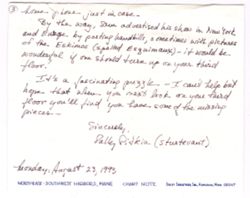 home - phone just in case.
By the way, Sam advertised his show in New York
and Europe by posting handbills, sometimes with pictures
of the Eskimos (spelled Esquimaux) - it would be
wonderful if one should turn up on your third
floor.
It's a fascinating puzzle - I could help but
hope that when you next look on your third
floor you'll find you have some of the missing
pieces -
Sincerely,
Sally (Sturtevant)
Monday, August 23, 1993
NORTHEAST - SOUTHWEST HARBORS, MAINE
CHART NOTE